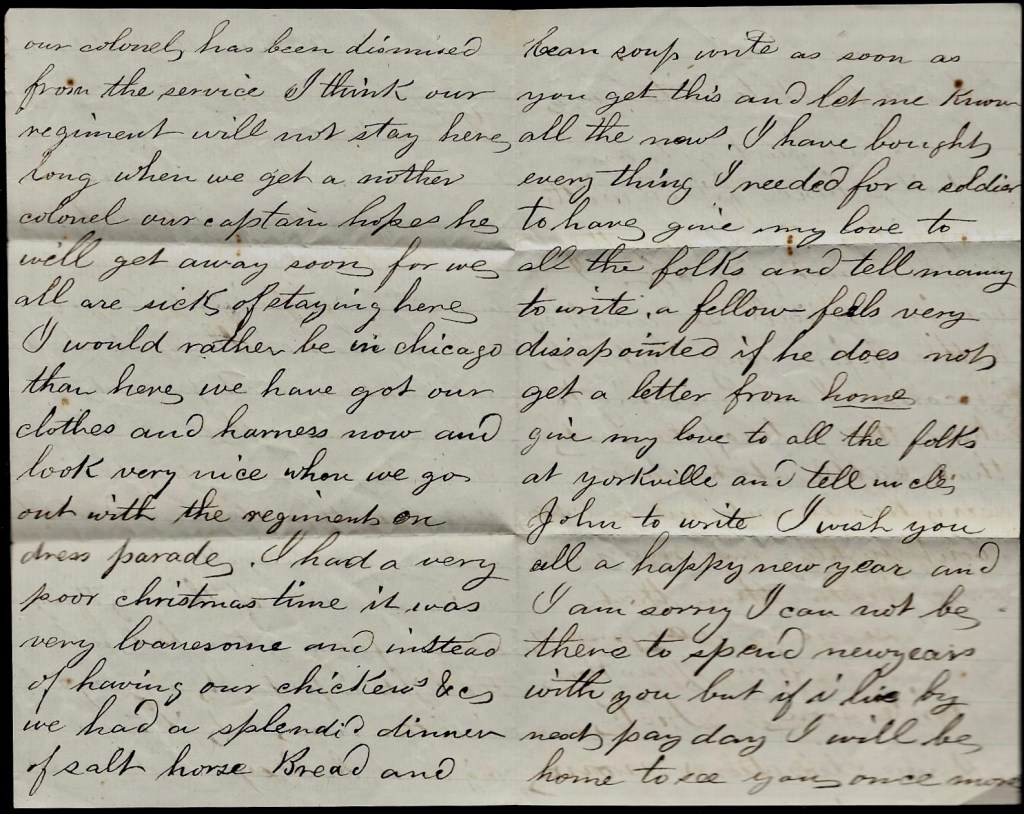 our colonel has been dismised
from the service I think our
regiment will not stay here
long when we get a nother
colonel our captain hopes he
will get away soon for we
all are sick of staying here
I would rather be in chicago
than here we have got our
clothes and harness now and
look very nice when we go
out with the regiment on
dress parade. I had a very
poor christmas time it was
very loanesome and instead
of having our chickens &c
we had a splendid dinner
of salt horse Bread and
Bean soup write as soon as
you get this and let me know
all the news. I have bought
every thing I needed for a soldier
to have give my love to
all the folks and tell
to write. a fellow feels very
dissapointed if he does not
get a letter from home
give my love to all the folks
at yorkville and tell uncle
John to write I wish you
all a happy new year and
I am sorry I can not be
there to spend newyears
with you but if i live by
next pay day I will be
home to see you once more